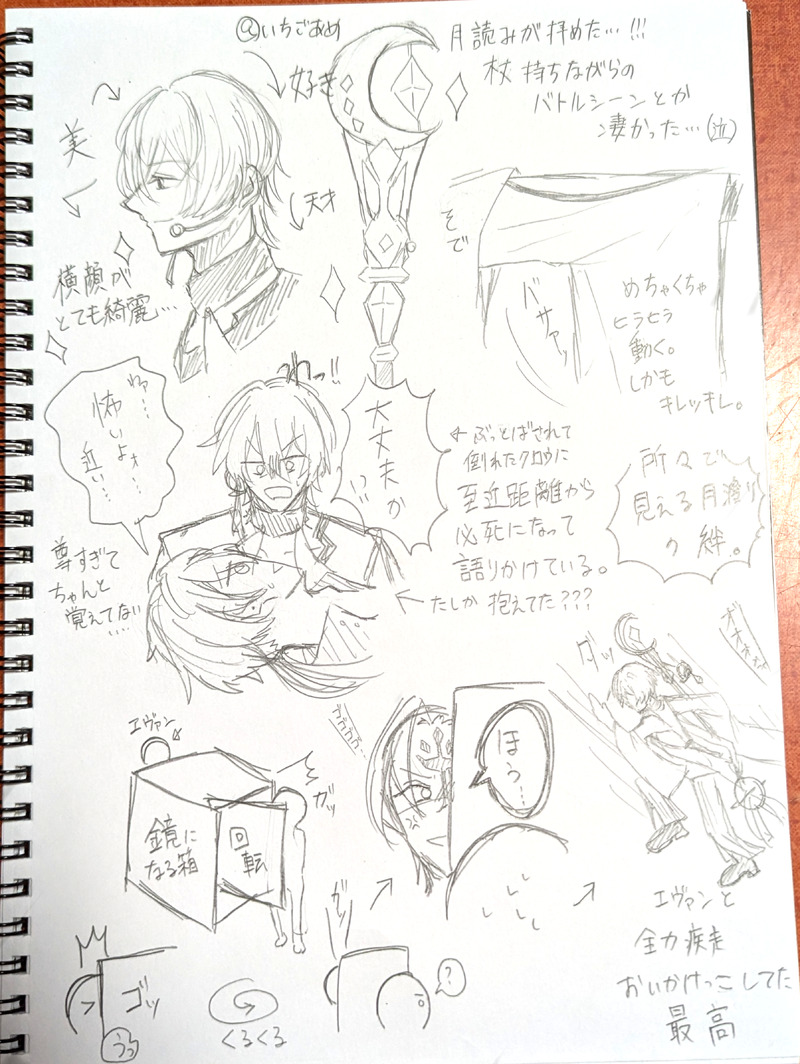 @いちごあめ
月読みが拝めた…!!!
杖 持ちながらの
バトルシーンとか
凄かった…(泣)
好き
美
天才
横顔が
とても綺麗…
そで
バサァッ
めちゃくちゃ
ヒラヒラ
動く。
しかも
キレッキレ。
わっ!!
怖いよォ…
近い…
大丈夫か
ぶっとばされて
倒れたクロウに
至近距離から
必死になって
語りかけている。
所々で
見える月濱り
の絆。
尊すぎて
ちゃんと
覚えてない
….
たしか 抱えてた???
ダッ
エヴァン
鏡に
なる箱
回転
ガッ
ゴゴゴゴ…
ほう…
エヴァンと
全力疾走
おいかけっこしてた
最高
ゴッ
うっ
くるくる
ガッ
?